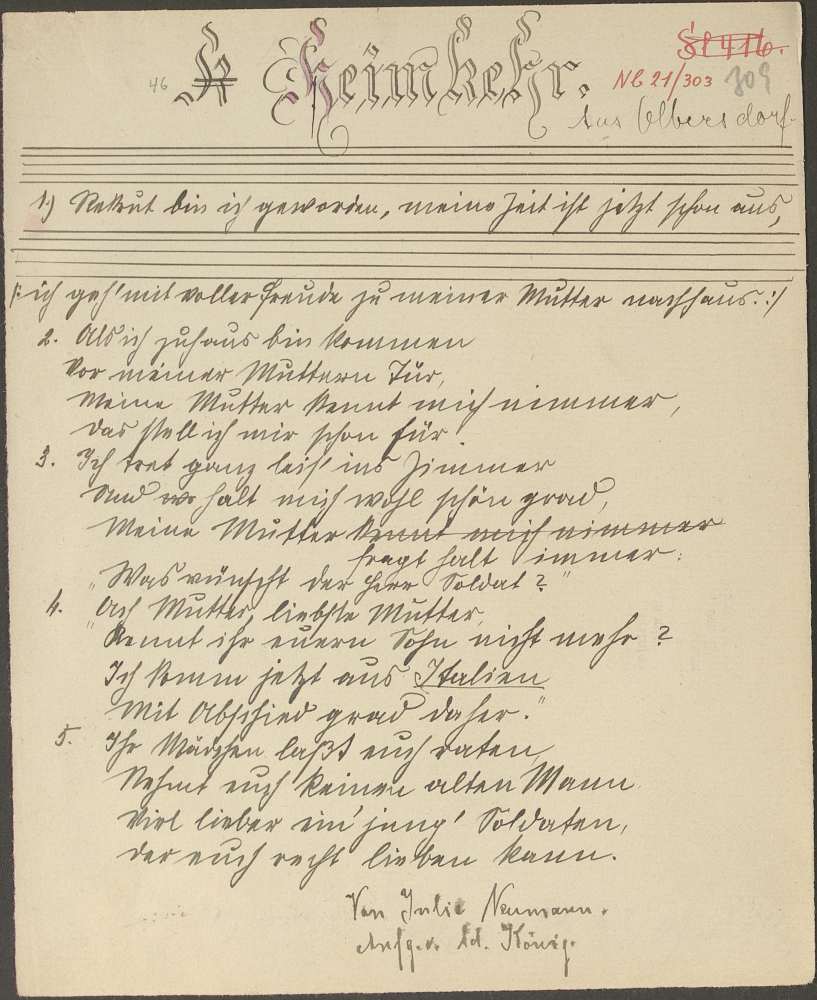 46 Heimkehr.
St 416.
NL 21/303 309
Aus Olbersdorf.
1.) Rekrut bin ich geworden, meine Zeit ist jetzt schon aus,
/: ich geh' mit voller Freude zu meiner Mutter nachhaus. :/
2. Als ich zuhaus bin kommen
Vor meiner Muttern Tür,
Meine Mutter kennt mich nimmer,
Das stell ich mir schon für.
3. Ich tret ganz leis' ins Zimmer
Und halt mich wohl schön grad,
Meine Mutter kennt mich nimmer
fragt halt immer:
"Was wünscht der Herr Soldat?"
4. "Ach Mutter, liebste Mutter,
Kennt ihr euern Sohn nicht mehr?
Ich komm jetzt aus Italien
Mit Abschied grad daher."
5. Ihr Mädchen laßt euch raten,
Nehmt euch keinen alten Mann.
Viel lieber ein' jung' Soldaten,
Der euch recht lieben kann.
Von Julie Neumann.
Aufg. v. Ad. König.